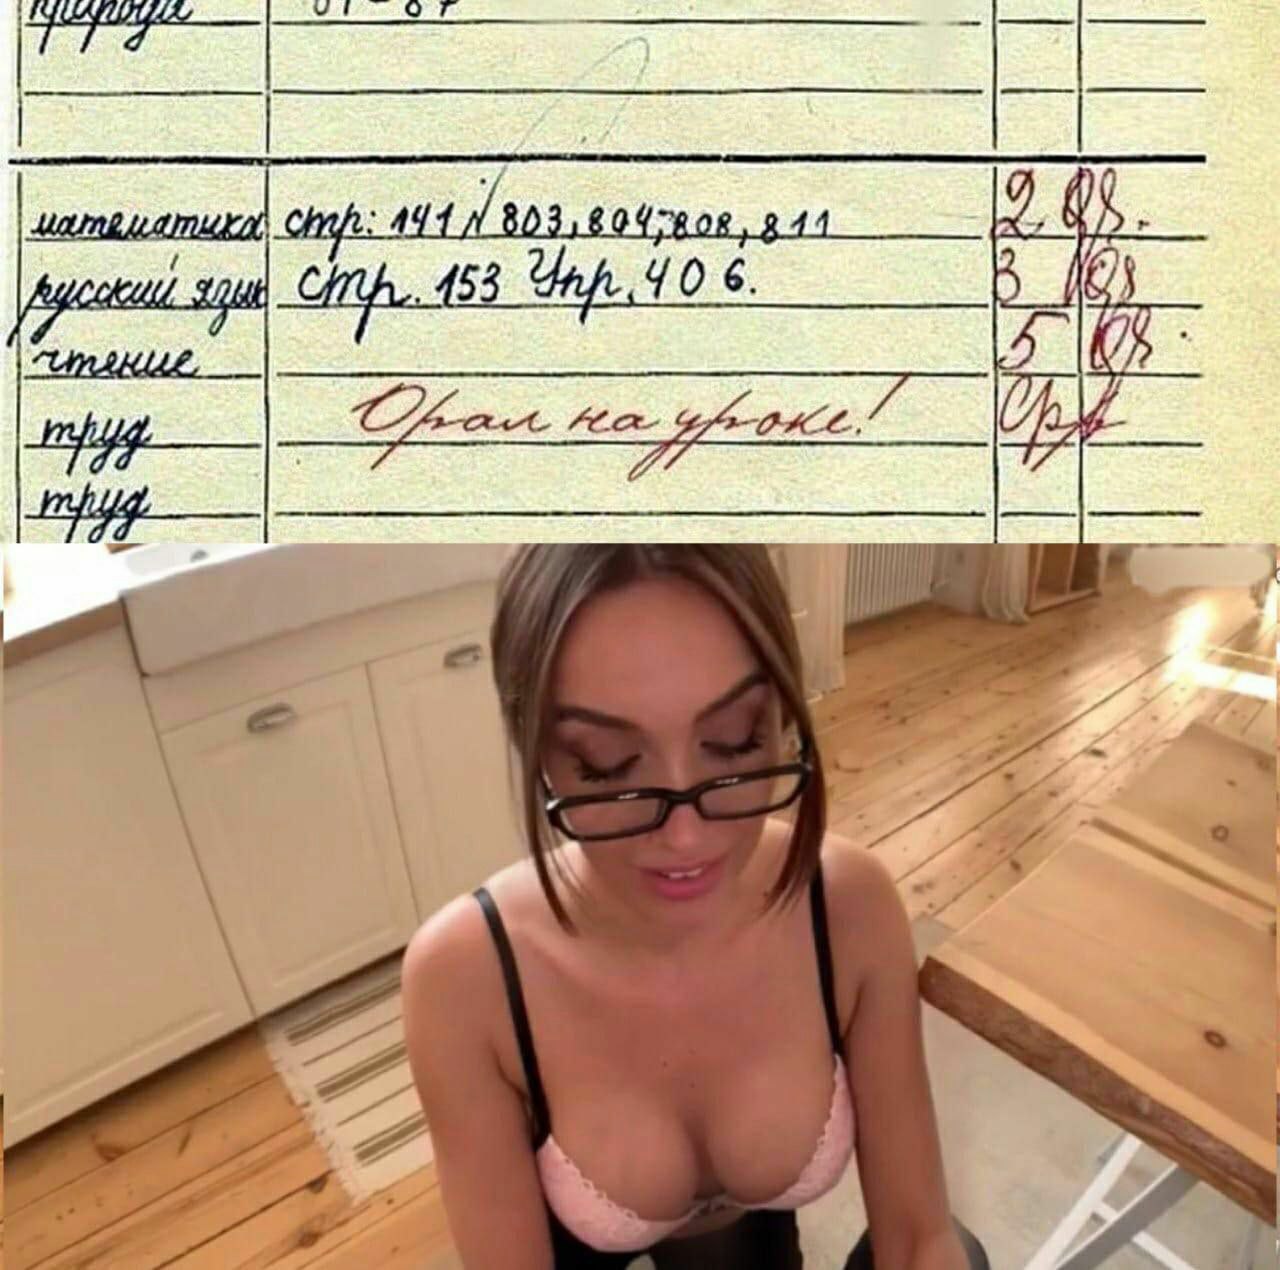 природа
математика стр: 141 № 803, 804, 808, 811 2
русский язык стр. 153 Упр. 406. 3
чтение 5
труд Орал на уроке!
труд